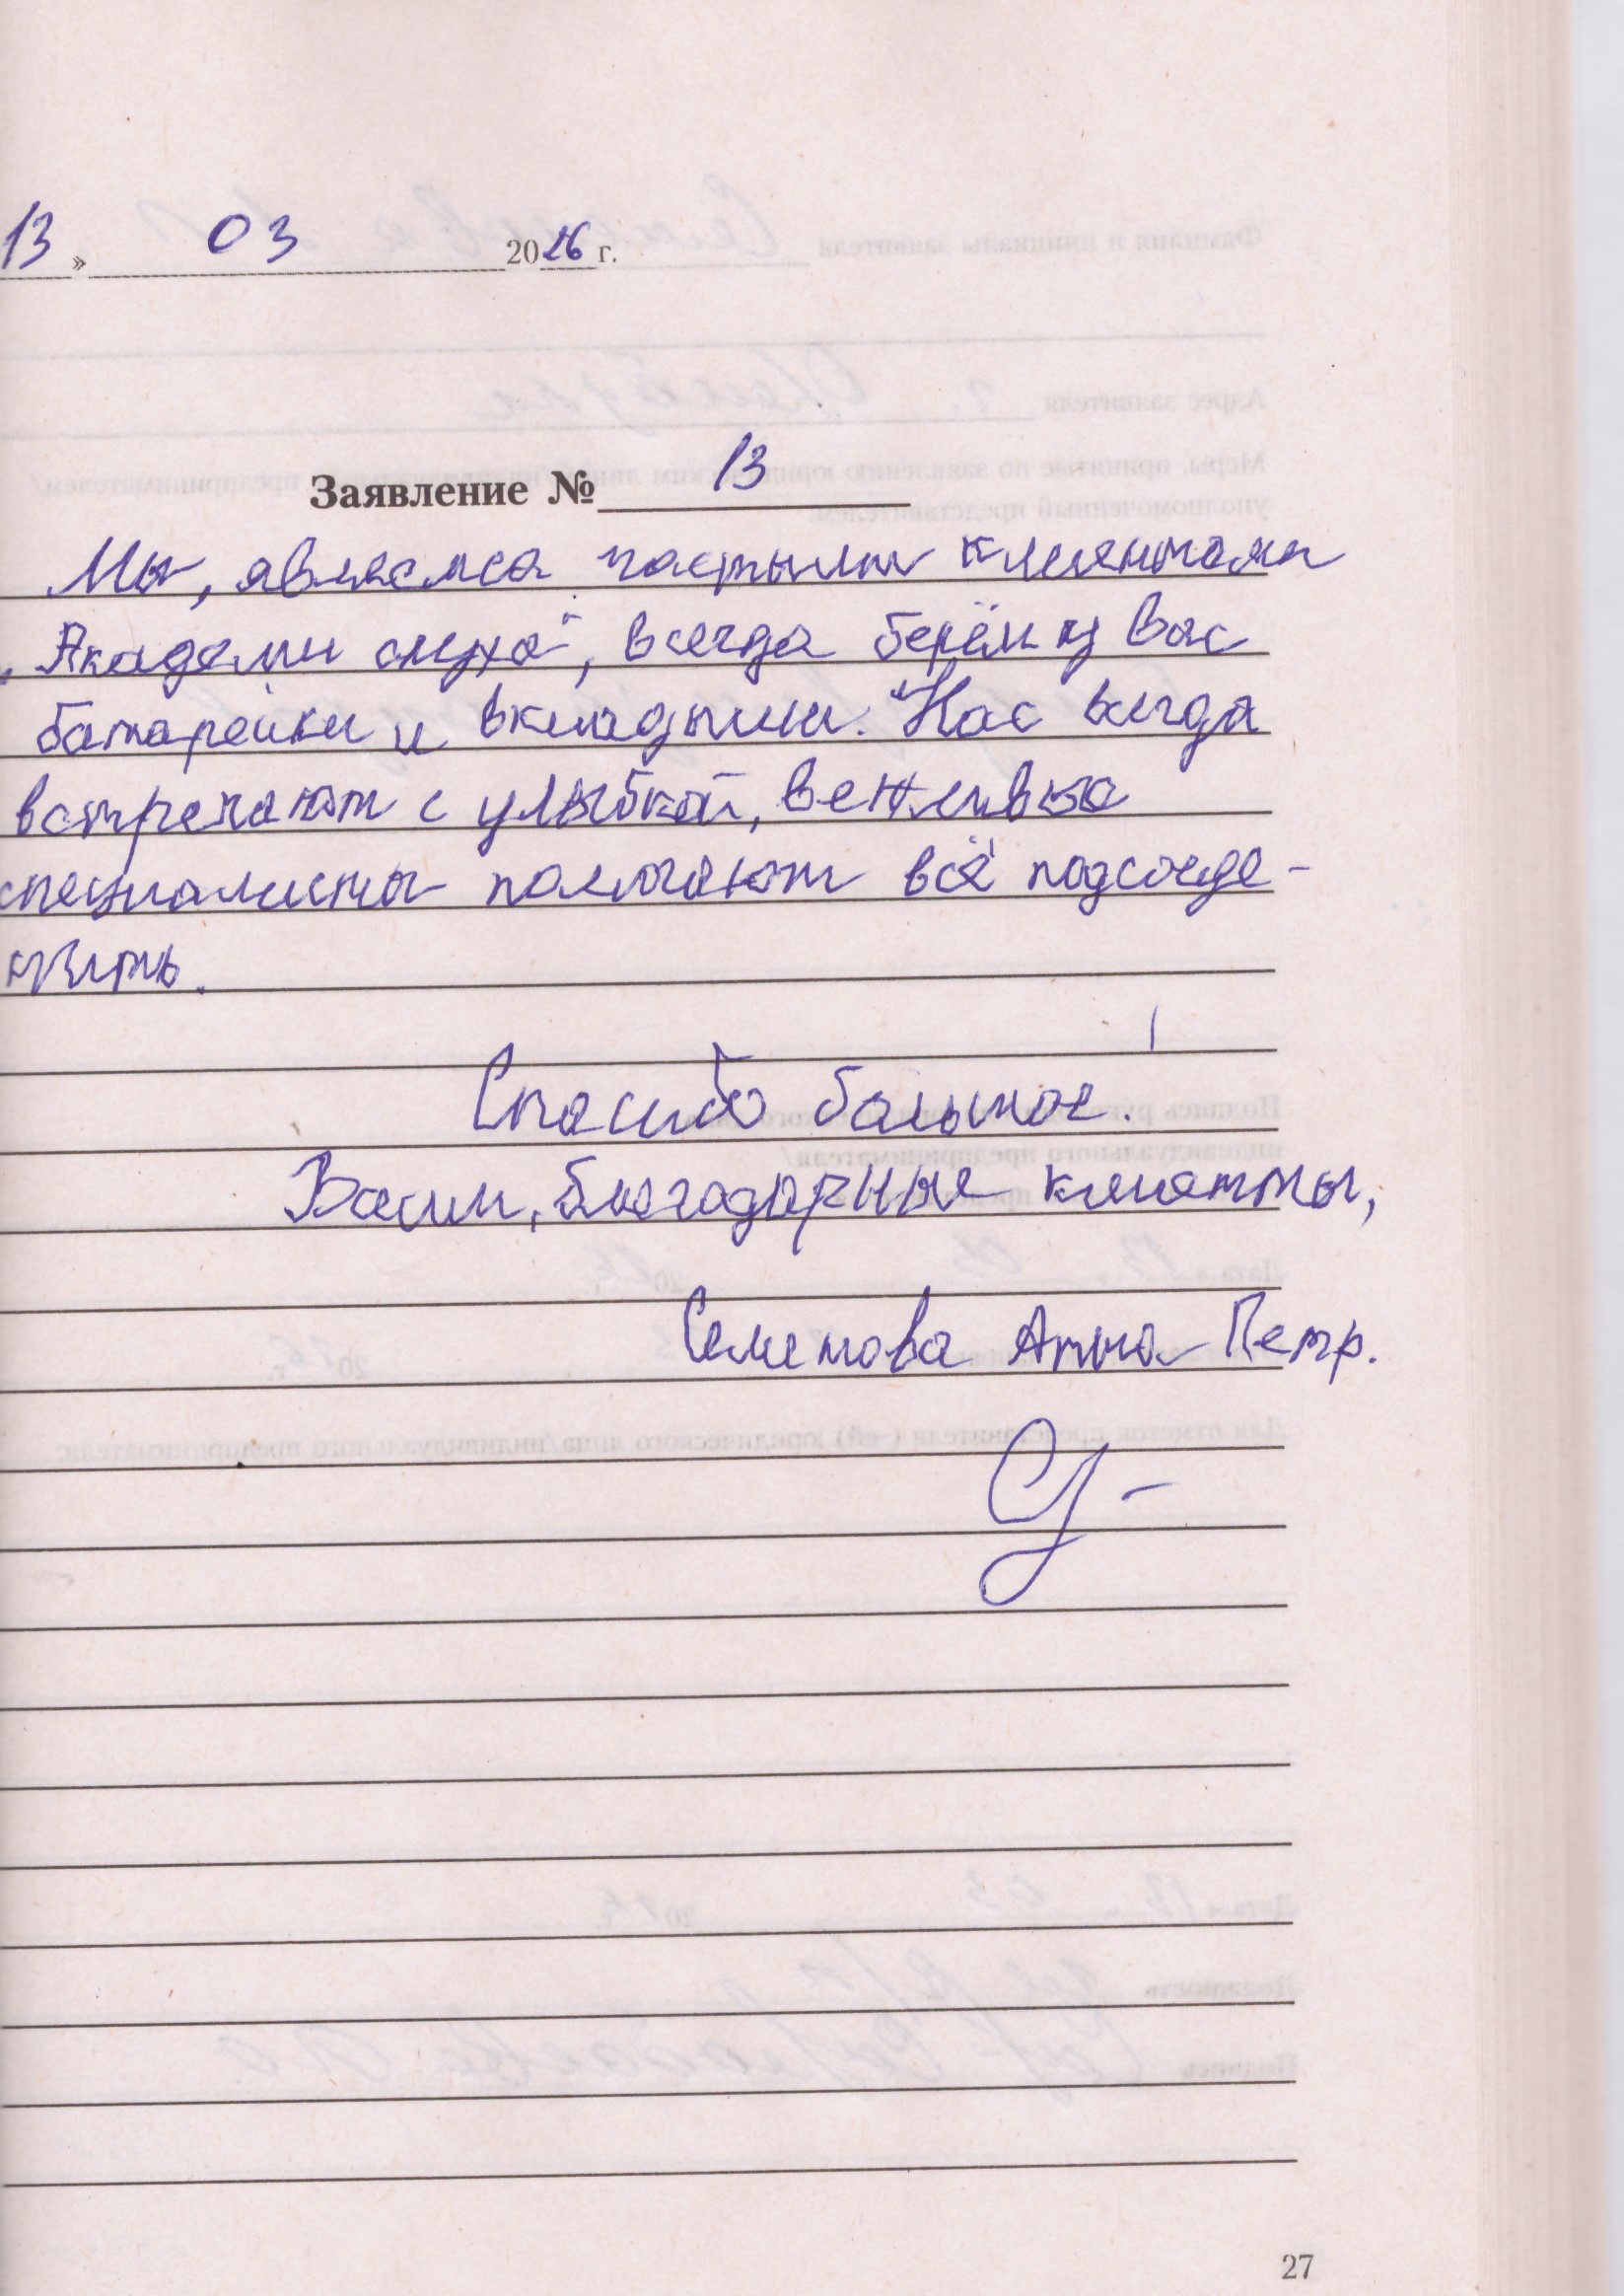 13 » 03 2026 г.
Заявление № 13
Мы, являемся частыми клиентами
„Академи слуха", всегда берём у Вас
батарейки и вкладыши. Нас всегда
встречают с улыбкой, вежливые
специалисты помогают всё подсоеде-
нить.
Спасибо большое.
Ваши, благодарные клиенты,
Семенова Анна Петр.
27